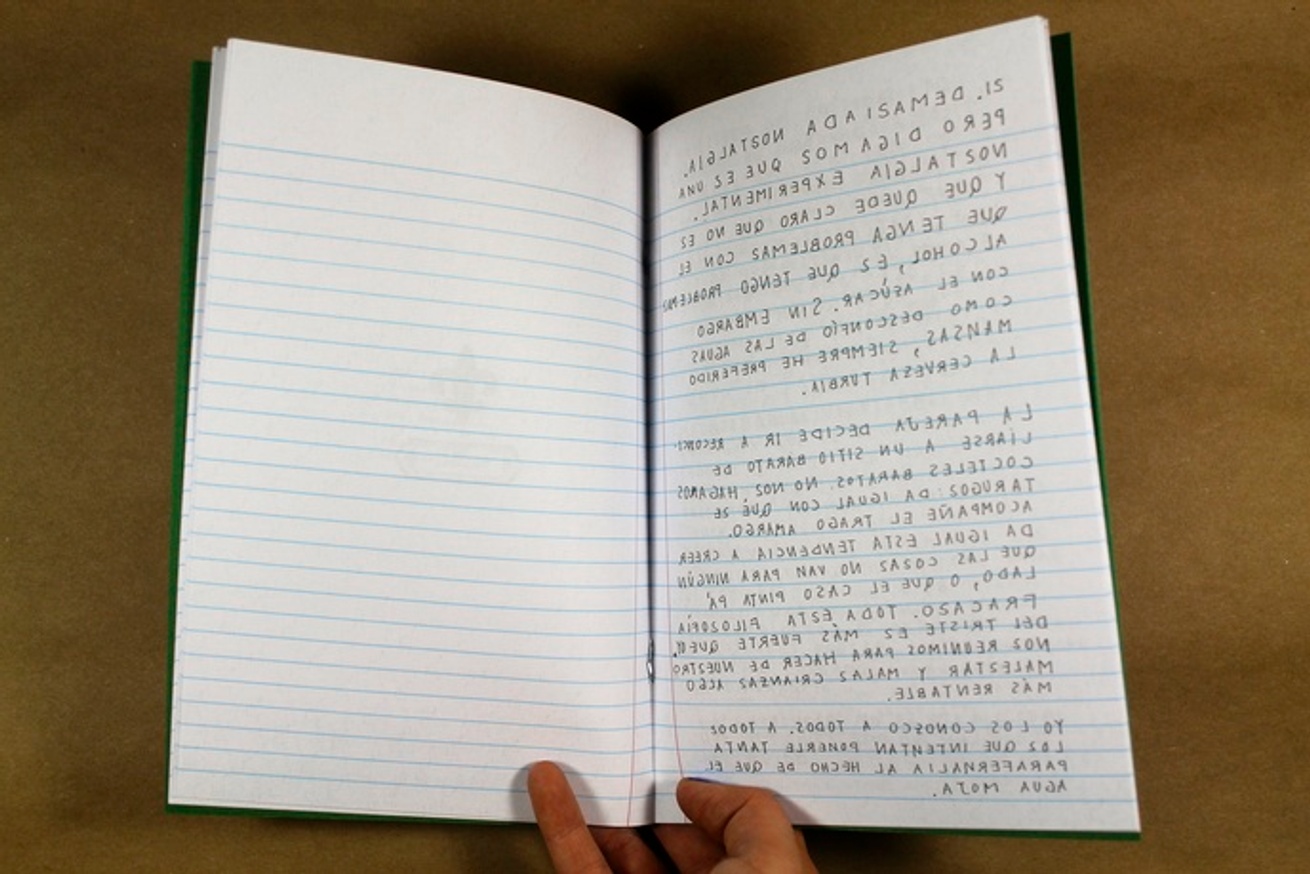 SI. DEMASIADA NOSTALGIA.
PERO DIGAMOS QUE ES UNA
NOSTALGIA EXPERIMENTAL.
Y QUE QUEDE CLARO QUE NO ES
QUE TENGA PROBLEMAS CON EL
ALCOHOL, ES QUE TENGO PROBLEMAS
CON EL AZÚCAR. SIN EMBARGO
COMO DESCONFÍO DE LAS AGUAS
MANSAS, SIEMPRE HE PREFERIDO
LA CERVESA TURBIA.
LA PAREJA DECIDE IR A RECONCI-
LIARSE A UN SITIO BARATO DE
COCTELES BARATOS. NO NOS HAGAMOS
TARUGOS: DA IGUAL CON QUÉ SE
ACOMPAÑE EL TRAGO AMARGO.
DA IGUAL ESTA TENDENCIA A CREER
QUE LAS COSAS NO VAN PARA NINGÚN
LADO, O QUE EL CASO PINTA PA'
FRACASO. TODA ESTA FILOSOFÍA
DEL TRISTE ES MÁS FUERTE QUE
NOS REUNIMOS PARA HACER DE NUESTRO
MALESTAR Y MALAS CRIANZAS ALGO
MÁS RENTABLE.
YO LOS CONOSCO A TODOS. A TODOS
LOS QUE INTENTAN PONERLE TANTA
PARAFERNALIA AL HECHO DE QUE EL
AGUA MOJA.